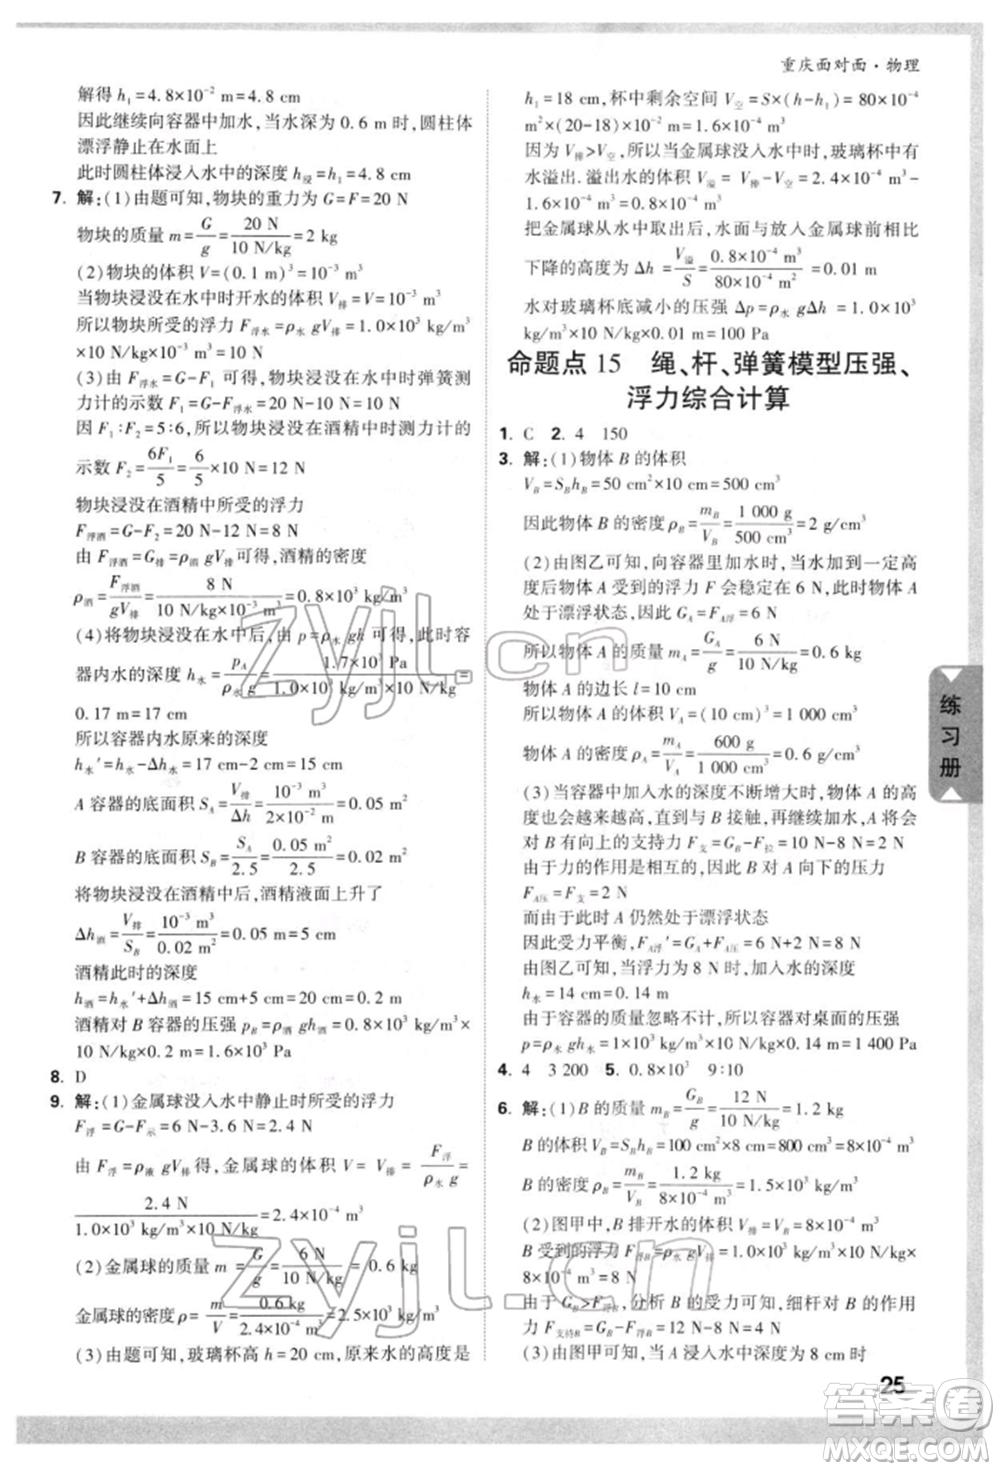 重庆面对面·物理
解得 h₁=4.8×10⁻² m=4.8 cm
因此继续向容器中加水,当水深为 0.6 m 时,圆柱体
漂浮静止在水面上
此时圆柱体浸入水中的深度 h浸=h₁=4.8 cm
7. 解:(1)由题可知,物块的重力为 G=F=20 N
物块的质量 m=G/g=20 N/10 N/kg=2 kg
(2)物块的体积 V=(0.1 m)³=10⁻³ m³
当物块浸没在水中时开水的体积 V排=V=10⁻³ m³
所以物块所受的浮力 F浮水=ρ水 gV排=1.0×10³ kg/m³
×10 N/kg×10⁻³ m³=10 N
(3)由 F浮=G-F 可得,物块浸没在水中时弹簧测
力计的示数 F₁=G-F浮水=20 N-10 N=10 N
因 F₁∶F₂=5∶6,所以物块浸没在酒精中时测力计的
示数 F₂=6F₁/5=6/5×10 N=12 N
物块浸没在酒精中所受的浮力
F浮酒=G-F₂=20 N-12 N=8 N
由 F浮酒=G排=ρ酒 gV排可得,酒精的密度
ρ酒=F浮酒/gV排=8 N/10 N/kg×10⁻³ m³=0.8×10³ kg/m³
(4)将物块浸没在水中后,由 p=ρ水 gh 可得,此时容
器内水的深度 h水=p_A/ρ水 g=1.7×10³ Pa/1.0×10³ kg/m³×10 N/kg=
0.17 m=17 cm
所以容器内水原来的深度
h水′=h水-Δh水=17 cm-2 cm=15 cm
A 容器的底面积 S_A=V排/Δh=10⁻³ m³/2×10⁻² m=0.05 m²
B 容器的底面积 S_B=S_A/2.5=0.05 m²/2.5=0.02 m²
将物块浸没在酒精中后,酒精液面上升了
Δh酒=V排/S_B=10⁻³ m³/0.02 m²=0.05 m=5 cm
酒精此时的深度
h酒=h水′+Δh酒=15 cm+5 cm=20 cm=0.2 m
酒精对 B 容器的压强 p_B=ρ酒 gh酒=0.8×10³ kg/m³
×10 N/kg×0.2 m=1.6×10³ Pa
8. D
9. 解:(1)金属球没入水中静止时所受的浮力
F浮=G-F示=6 N-3.6 N=2.4 N
由 F浮=ρ液 gV排得,金属球的体积 V=V排=F浮/ρ水 g=
2.4 N/1.0×10³ kg/m³×10 N/kg=2.4×10⁻⁴ m³
(2)金属球的质量 m=G/g=6 N/10 N/kg=0.6 kg
金属球的密度 ρ=m/V=0.6 kg/2.4×10⁻⁴ m³=2.5×10³ kg/m³
(3)由题可知,玻璃杯高 h=20 cm,原来水的高度是
h₁=18 cm,杯中剩余空间 V空=S×(h-h₁)=80×10⁻⁴
m²×(20-18)×10⁻² m=1.6×10⁻⁴ m³
因为 V排>V空,所以当金属球没入水中时,玻璃杯中有
水溢出.溢出水的体积 V溢=V排-V空=2.4×10⁻⁴ m³-
1.6×10⁻⁴ m³=0.8×10⁻⁴ m³
把金属球从水中取出后,水面与放入金属球前相比
下降的高度为 Δh=V溢/S=0.8×10⁻⁴ m³/80×10⁻⁴ m²=0.01 m
水对玻璃杯底减小的压强 Δp=ρ水 gΔh=1.0×10³
kg/m³×10 N/kg×0.01 m=100 Pa
命题点 15 绳、杆、弹簧模型压强、
浮力综合计算
1. C 2. 4 150
3. 解:(1)物体 B 的体积
V_B=S_B h_B=50 cm²×10 cm=500 cm³
因此物体 B 的密度 ρ_B=m_B/V_B=1 000 g/500 cm³=2 g/cm³
(2)由图乙可知,向容器里加水时,当水加到一定高
度后物体 A 受到的浮力 F 会稳定在 6 N,此时物体 A
处于漂浮状态,因此 G_A=F_A浮=6 N
所以物体 A 的质量 m_A=G_A/g=6 N/10 N/kg=0.6 kg
物体 A 的边长 l=10 cm
所以物体 A 的体积 V_A=(10 cm)³=1 000 cm³
物体 A 的密度 ρ_A=m_A/V_A=600 g/1 000 cm³=0.6 g/cm³
(3)当容器中加入水的深度不断增大时,物体 A 的高
度也会越来越高,直到与 B 接触,再继续加水,A 将会
对 B 有向上的支持力 F支=G_B-F拉=10 N-8 N=2 N
由于力的作用是相互的,因此 B 对 A 向下的压力
F_A压=F支=2 N
而由于此时 A 仍然处于漂浮状态
因此受力平衡,F_A浮′=G_A+F_A压=6 N+2 N=8 N
由图乙可知,当浮力为 8 N 时,加入水的深度
h水=14 cm=0.14 m
由于容器的质量忽略不计,所以容器对桌面的压强
p=ρ水 gh水=1.0×10³ kg/m³×10 N/kg×0.14 m=1 400 Pa
4. 4 3 200 5. 0.8×10³ 9∶10
6. 解:(1)B 的质量 m_B=G_B/g=12 N/10 N/kg=1.2 kg
B 的体积 V_B=S_B h_B=100 cm²×8 cm=800 cm³=8×10⁻⁴ m³
B 的密度 ρ_B=m_B/V_B=1.2 kg/8×10⁻⁴ m³=1.5×10³ kg/m³
(2)图甲中,B 排开水的体积 V排=V_B=8×10⁻⁴ m³
B 受到的浮力 F浮B=ρ水 gV排=1×10³ kg/m³×10 N/kg×
8×10⁻⁴ m³=8 N
由于 G_B>F浮B,分析 B 的受力可知,细杆对 B 的作用
力 F支持B=G_B-F浮B=12 N-8 N=4 N
(3)由图甲可知,当 A 浸入水中深度为 8 cm 时
练习册
25
zyjl.cn
zyjl.cn
答案圈
MXQE.COM